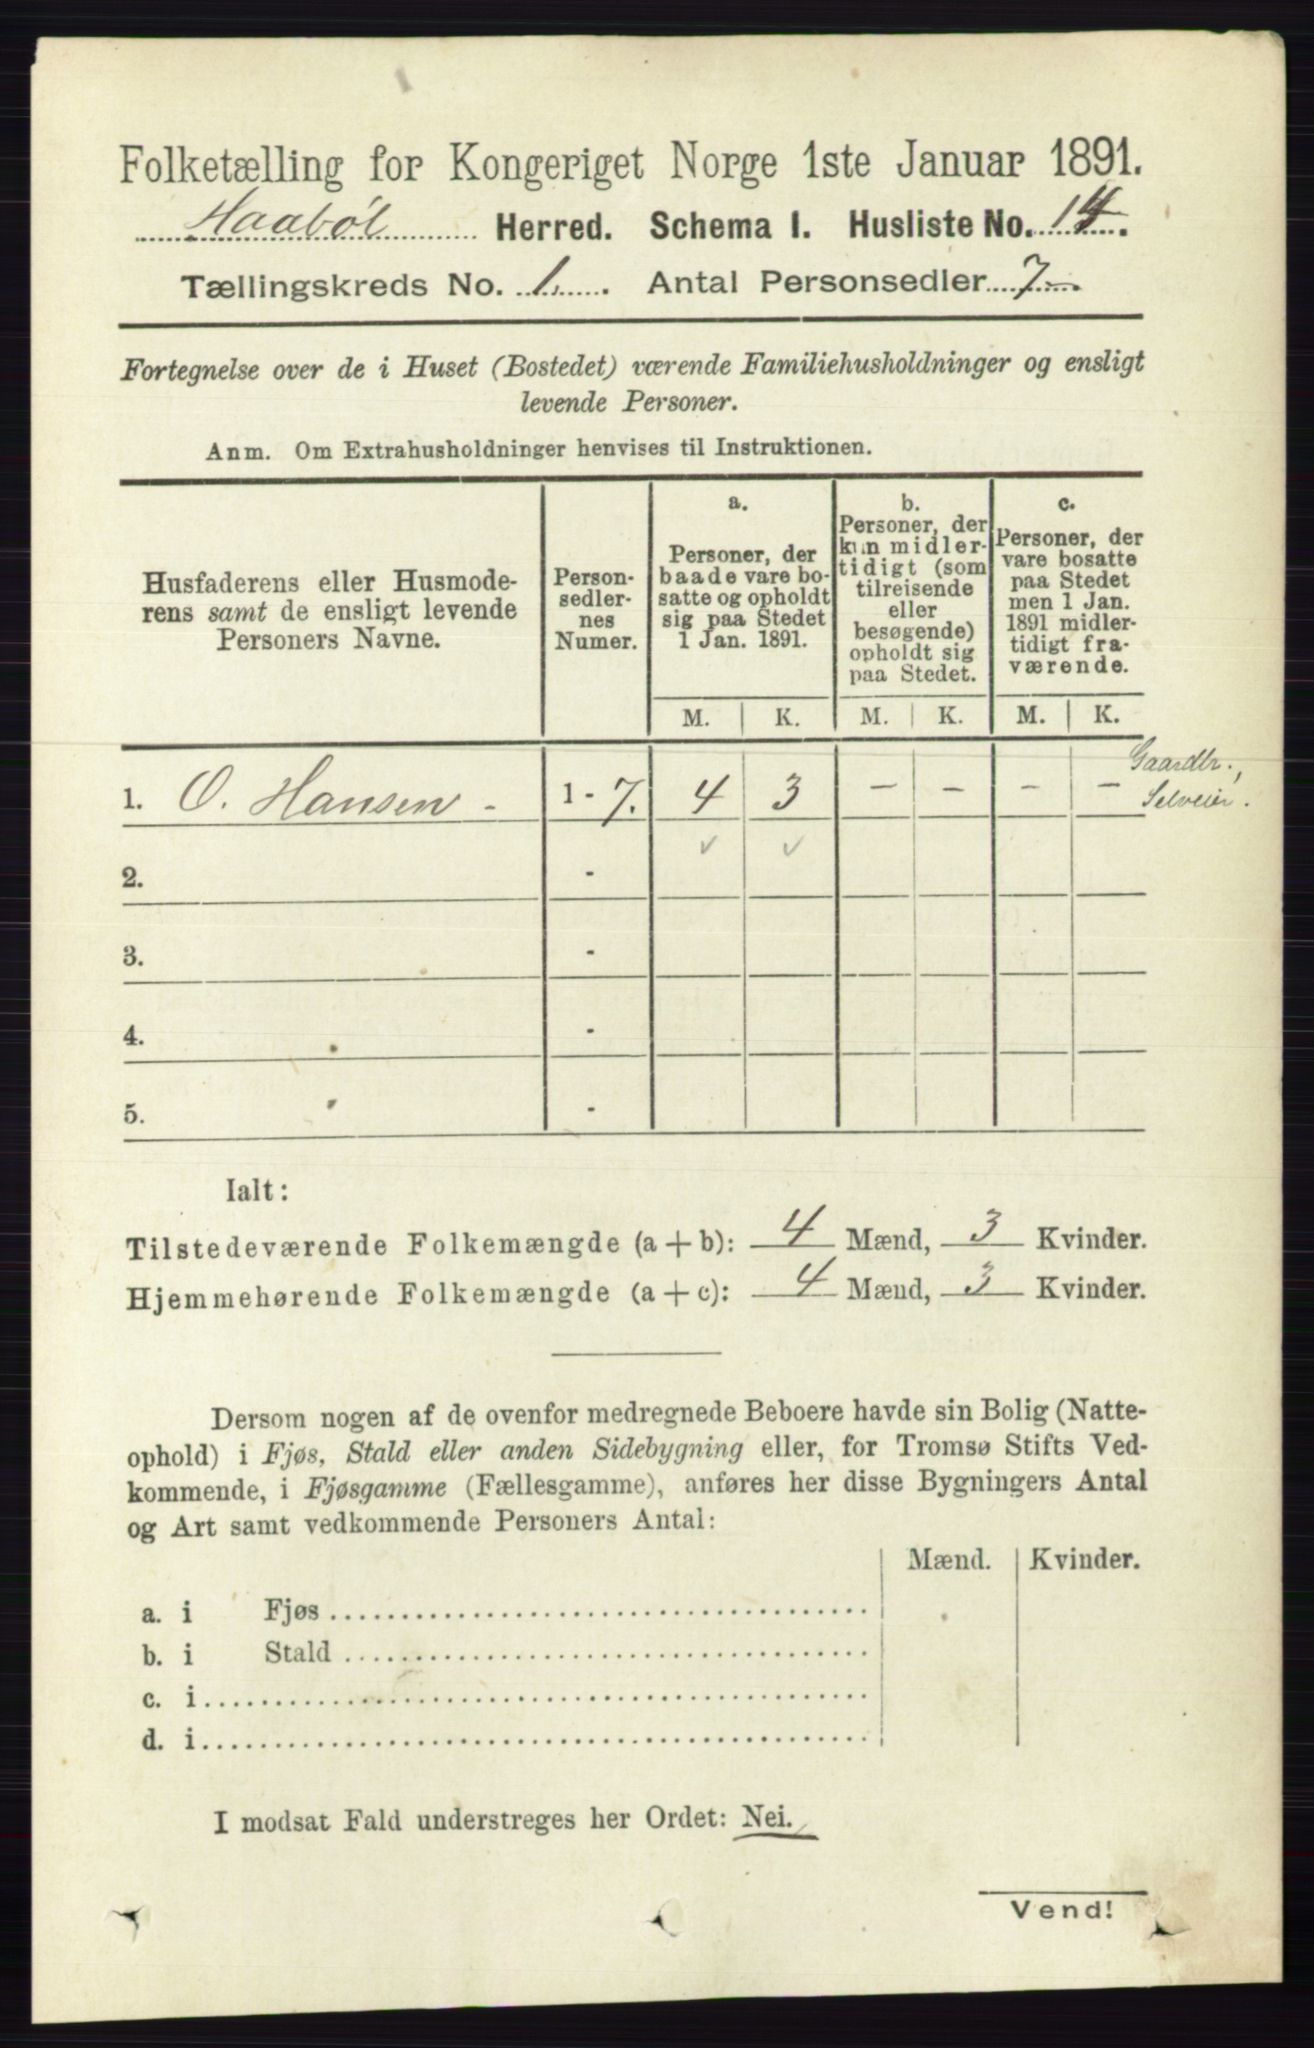 Folketælling for Kongeriget Norge 1ste Januar 1891.
Haabøl Herred. Schema I. Husliste No. 14.
Tællingskreds No. 1. Antal Personsedler 7.
Fortegnelse over de i Huset (Bostedet) værende Familiehusholdninger og ensligt
levende Personer.
Anm. Om Extrahusholdninger henvises til Instruktionen.
Husfaderens eller Husmode-
rens samt de ensligt levende
Personers Navne.
Person-
sedler-
nes
Numer.
a.
Personer, der
baade vare bo-
satte og opholdt
sig paa Stedet
1 Jan. 1891.
b.
Personer, der
kun midler-
tidigt (som
tilreisende
eller
besøgende)
opholdt sig
paa Stedet.
c.
Personer, der
vare bosatte
paa Stedet
men 1 Jan.
1891 midler-
tidigt fra-
værende.
M. K. M. K. M. K.
1. O. Hansen - 1 - 7. 4 3 - - - - Gaardbr.,
Selveier.
2. -
3. -
4. -
5. -
Ialt:
Tilstedeværende Folkemængde (a + b): 4 Mænd, 3 Kvinder.
Hjemmehørende Folkemængde (a + c): 4 Mænd, 3 Kvinder.
Dersom nogen af de ovenfor medregnede Beboere havde sin Bolig (Natte-
ophold) i Fjøs, Stald eller anden Sidebygning eller, for Tromsø Stifts Ved-
kommende, i Fjøsgamme (Fællesgamme), anføres her disse Bygningers Antal
og Art samt vedkommende Personers Antal:
Mænd. Kvinder.
a. i Fjøs
b. i Stald
c. i
d. i
I modsat Fald understreges her Ordet: Nei.
Vend!